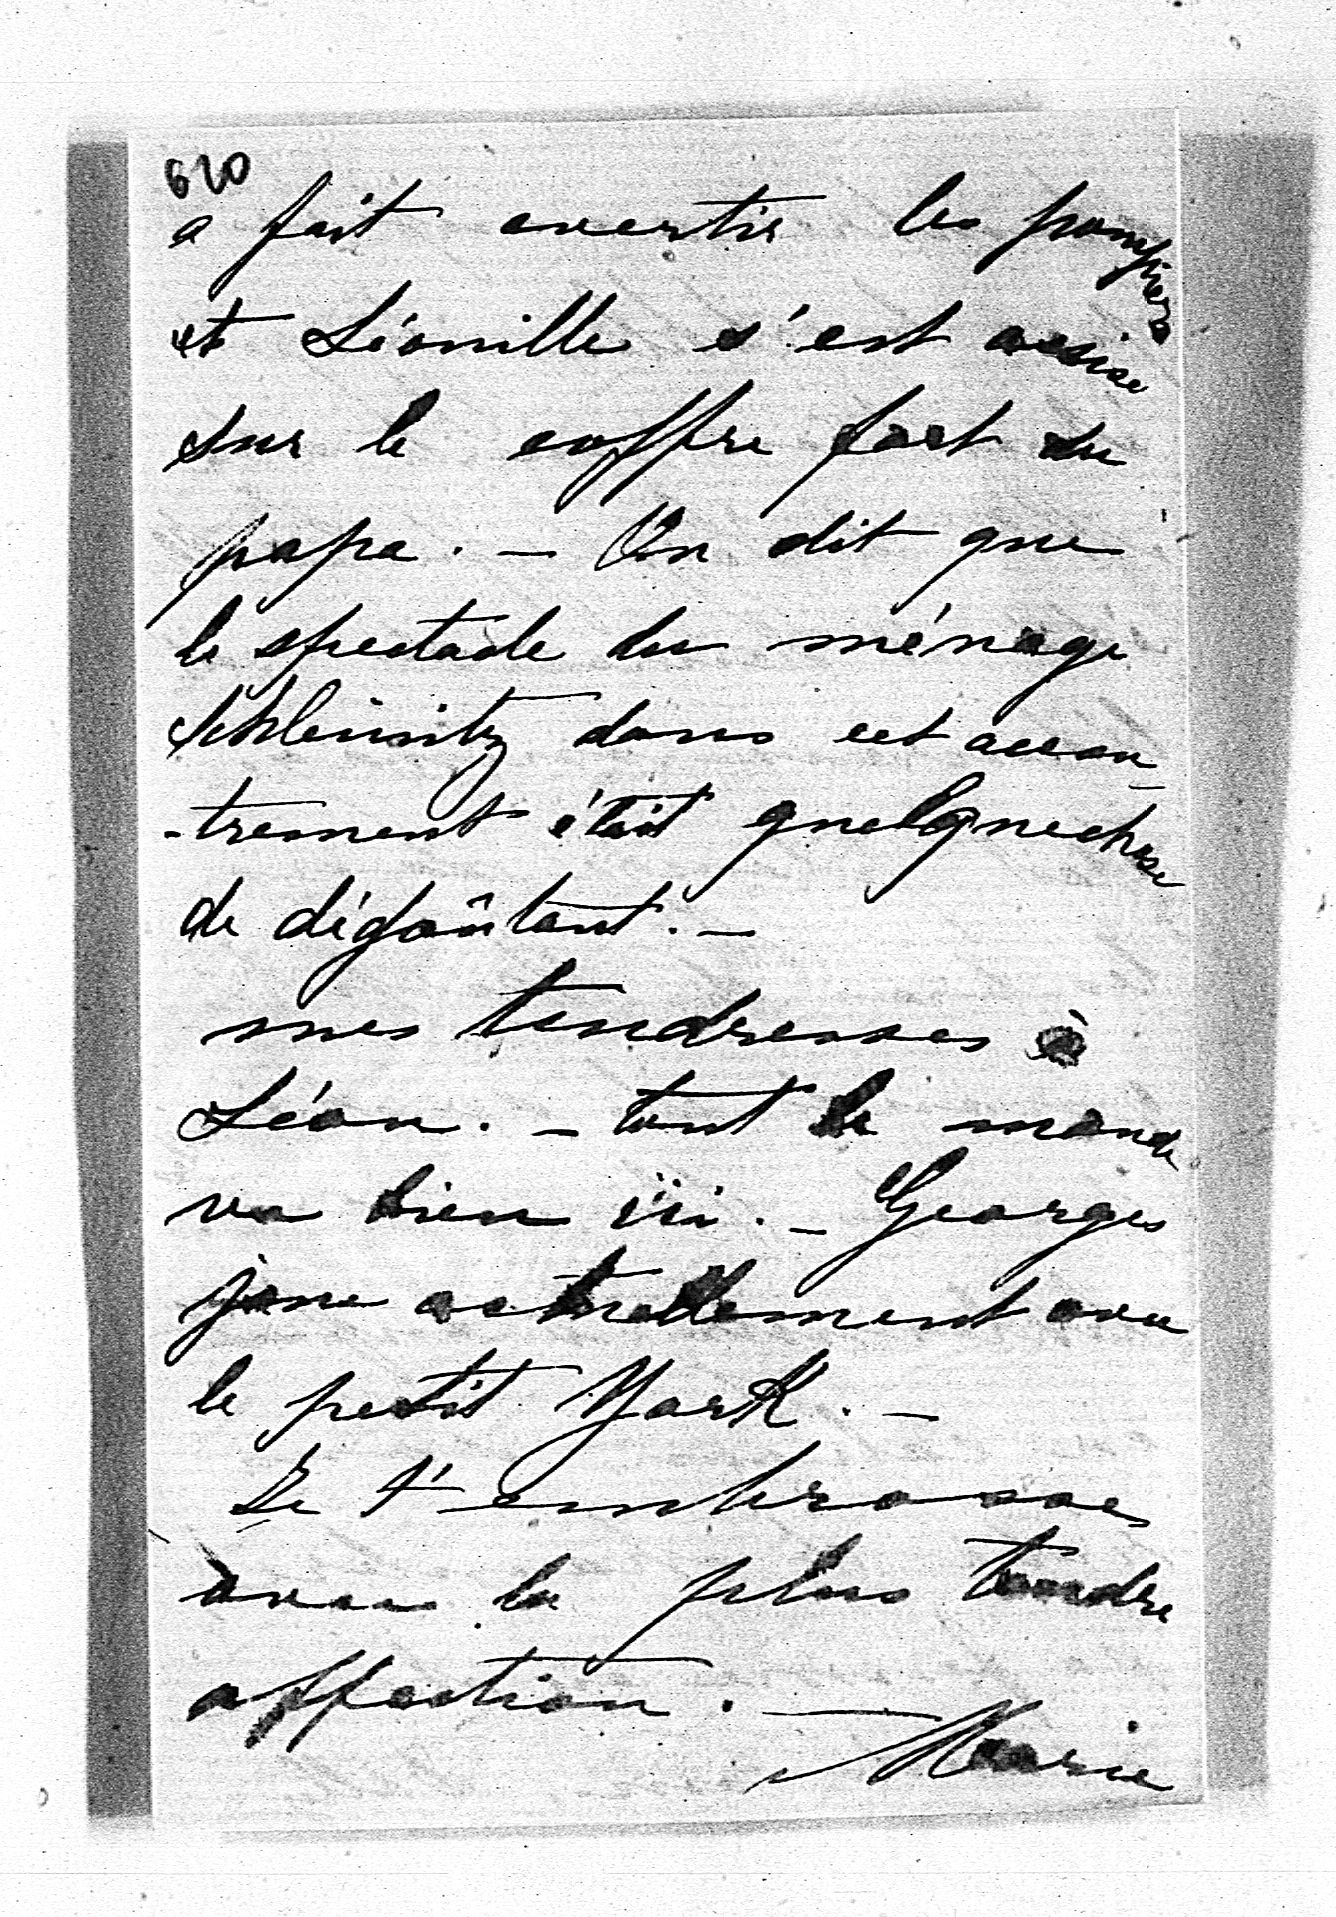 620
a fait avertir les pompiers
et Léonille s'est assise
sur le coffre fort du
papa. — On dit que
le spectacle du ménage
Schleinitz dans cet accou-
-trement était quelque chose
de dégoûtant. —
mes tendresses à
Léon. — tout le monde
va bien ici. — Georges
joue actuellement avec
le petit York. —
Je t'embrasse
avec la plus tendre
affection. —
Marie